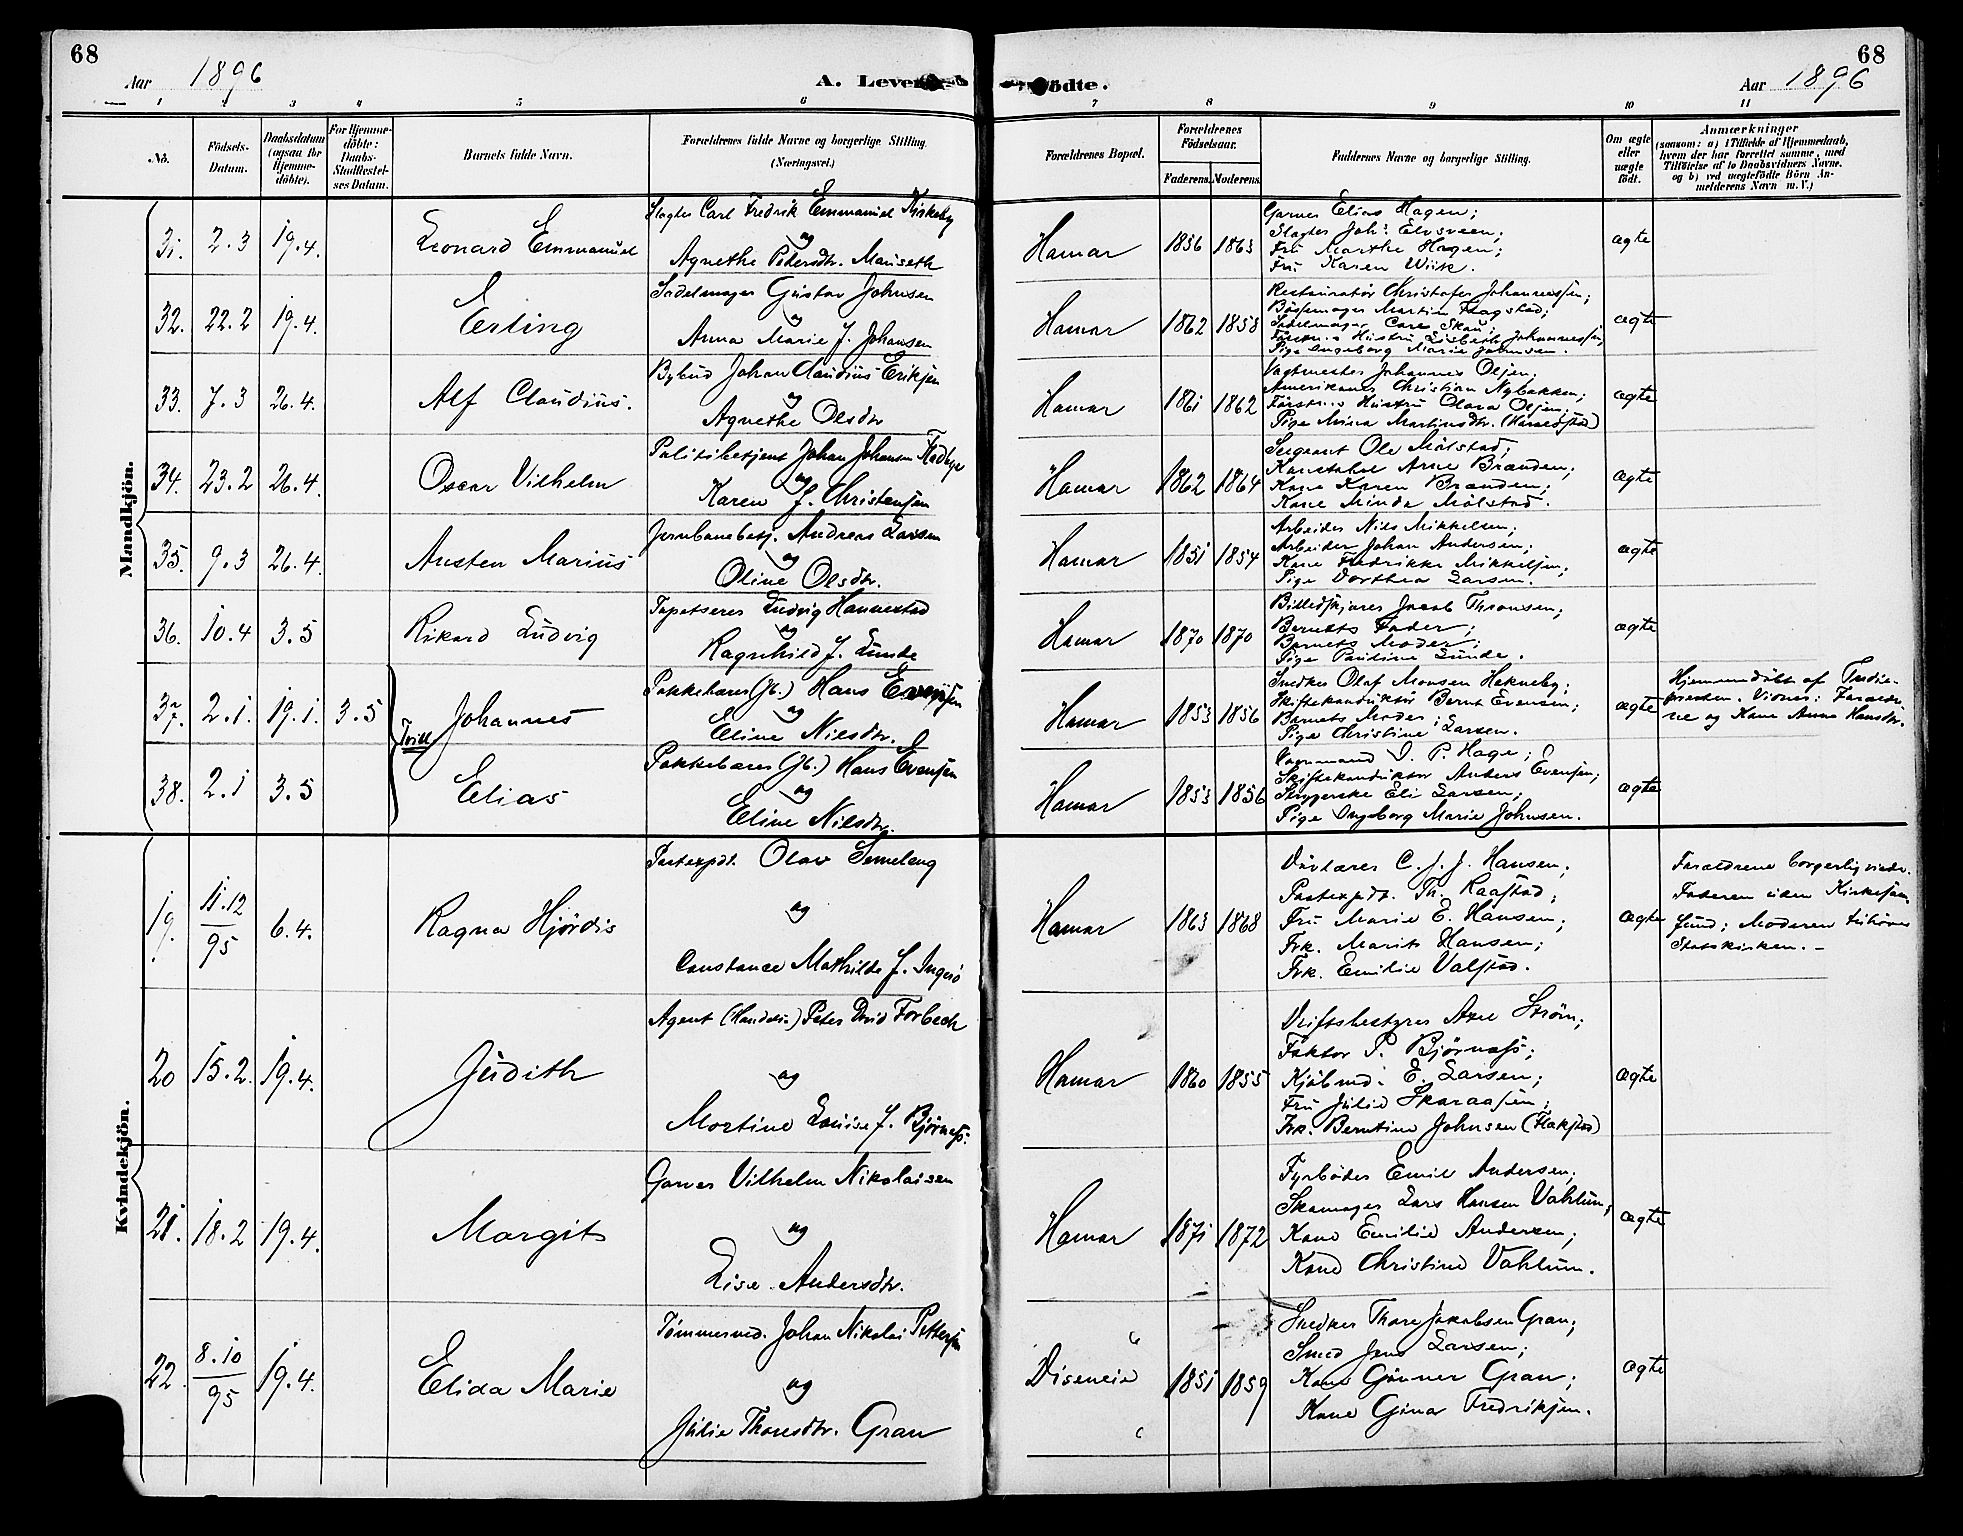 68
Aar 1896
A. Levende
fødte.
68
Aar 1896
1 2 3 4 5 6 7 8 9 10 11
No.
Fødsels-Datum.
Daabsdatum (ogsaa for Hjemme-døbte).
For Hjemme-døbte: Daabs-Stadfæstel-ses Datum.
Barnets fulde Navn.
Forældrenes fulde Navne og borgerlige Stilling. (Næringsvei.)
Forældrenes Bopæl.
Forældrenes Fødselsaar.
Faderens. Moderens.
Faddernes Navne og borgerlige Stilling.
Om ægte eller uægte født.
Anmærkninger
(saasom: a) i Tilfælde af Hjemmedaab, hvem der har forrettet samme, med Tilføielse af to Daabsvidners Navne, og b) ved uægtefødte Børn An-melderens Navn m. V.)
Mandkjøn.
31. 2.3 19.4. Leonard Emmanuel
Slagter Carl Fredrik Emmanuel Kirkeby
og
Agnethe Pedersdtr. Mauseth
Hamar 1856 1863
Garver Elias Hagen;
Slagter Johs Elvsveen;
Fru Marthe Hagen;
Fru Karen Wiik.
ægte
32. 22.2 19.4. Erling
Sadelmager Gustav Johnsen
og
Anna Marie J. Johansen
Hamar 1862 1858
Restauratør Christofer Johannessen;
Bøssemager Martin Flagstad;
Sadelmager Carl Skau;
Førstn.s Hustru Lisbeth Johannessen;
Pige Ingeborg Marie Johnsen.
ægte
33. 7.3 26.4. Alf Claudius.
Bybud Johan Claudius Eriksen
og
Agnethe Olsdtr
Hamar 1861 1862
Vagtmester Johannes Olsen;
Amerikaner Christian Nybakken;
Førstn.s Hustru Olava Olsen;
Pige Mina Martinsdtr. (Haraldstad)
ægte
34. 23.2 26.4. Oscar Vilhelm
Politibetjent Johan Johansen Fladbye
og
Karen J. Christensen
Hamar 1862 1864
Sergeant Ole Mølstad;
Konstabel Arne Brænden;
Kone Karen Brænden;
Kone Minda Mølstad.
ægte
35. 9.3 26.4. Austen Marius
Jernbanebetj. Andreas Larsen
og
Oline Olsdtr.
Hamar 1851 1854
Arbeider Nils Mikkelsen;
Arbeider Johan Andersen;
Kone Fredrikke Mikkelsen;
Pige Dorthea Larsen.
ægte
36. 10.4 3.5 Rikard Ludvig
Tapetserer Ludvig Hannestad
og
Ragnhild J. Lunde
Hamar 1870 1870
Billedskjærer Jacob Thomsen;
Barnets Fader;
Barnets Moder;
Pige Pauline Lunde.
ægte
37. 2.1. 19.1. 3.5 Johannes
Tvill
Pakkebærer (Jb.) Hans Evensen
og
Eline Nilsdtr.
Hamar 1853 1856
Snedker Olaf Monsen Hekneby;
Skiftekonduktør Bernt Evensen;
Barnets Moder;
Pige Christine Larsen.
ægte
Hjemmedøbt af
præsten. Vidner: Forældre-
ne og Kone Anna Hansdtr.
38. 2.1 3.5 Elias
Pakkebærer (Jb.) Hans Evensen
og
Eline Nilsdtr.
Hamar 1853 1856
P. Hage;
Skiftekonduktør Anders Evensen;
Strygerske Eli Larsen;
Pige Ingeborg Marie Johnsen.
ægte
Kvindekjøn.
19. 11.12/95 6.4. Ragna Hjørdis
Postexpdt. Olav
og
Constance Mathilde J.
Hamar 1863 1868
C. J. J. Hansen;
Postexpdt. Th. Raastad;
Fru Marie E. Hansen;
Frk. Marit Hansen;
Frk. Emilie Valstad.
ægte
Forældrene borgerlig viede.
Faderen uden Kirkesam-
fund; Moderen tilhører
Statskirken. –
20 15.2. 19.4. Judith
Agent (Handels.) Peter David Forbech
og
Martine Louise J. Bjørness.
Hamar 1860 1855
Driftsbestyrer Axel Strøm;
Faktor P. Bjørnass;
Kjøbmd. E. Larsen;
Fru Julie Skaraasen;
Frk. Berntine Johnsen (Flakstad)
ægte
21. 18.2 19.4. Margit
Garver Vilhelm Nikolaisen
og
Lise Andersdtr.
Hamar 1871 1872
Fyrbøder Emil Andersen;
Skomager Lars Hansen Vahlum;
Kone Emilie Andersen;
Kone Christine Vahlum.
ægte
22. 8.10/95 19.4. Elida Marie
Tømmermd. Johan Nikolai Pettersen
og
Julie Thoresdtr. Gran
Diseneie 1851 1859
Snedker Thore Jakobsen Gran;
Smed Jens Larsen;
Kone Gunner Gran;
Kone Gina Fredriksen.
ægte